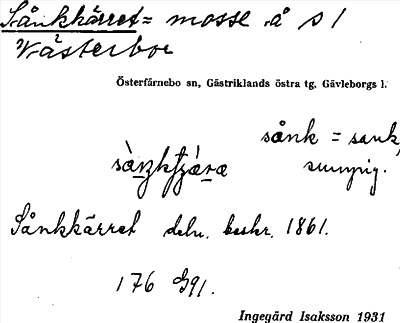 Sånkkärret = mosse å s/
Västerbor
Österfärnebo sn, Gästriklands östra tg, Gävleborgs l.
sånk = sank,
sumpig.
Sånkkärret deln. beskr. 1861.
176 G91.
Ingegärd Isaksson 1931